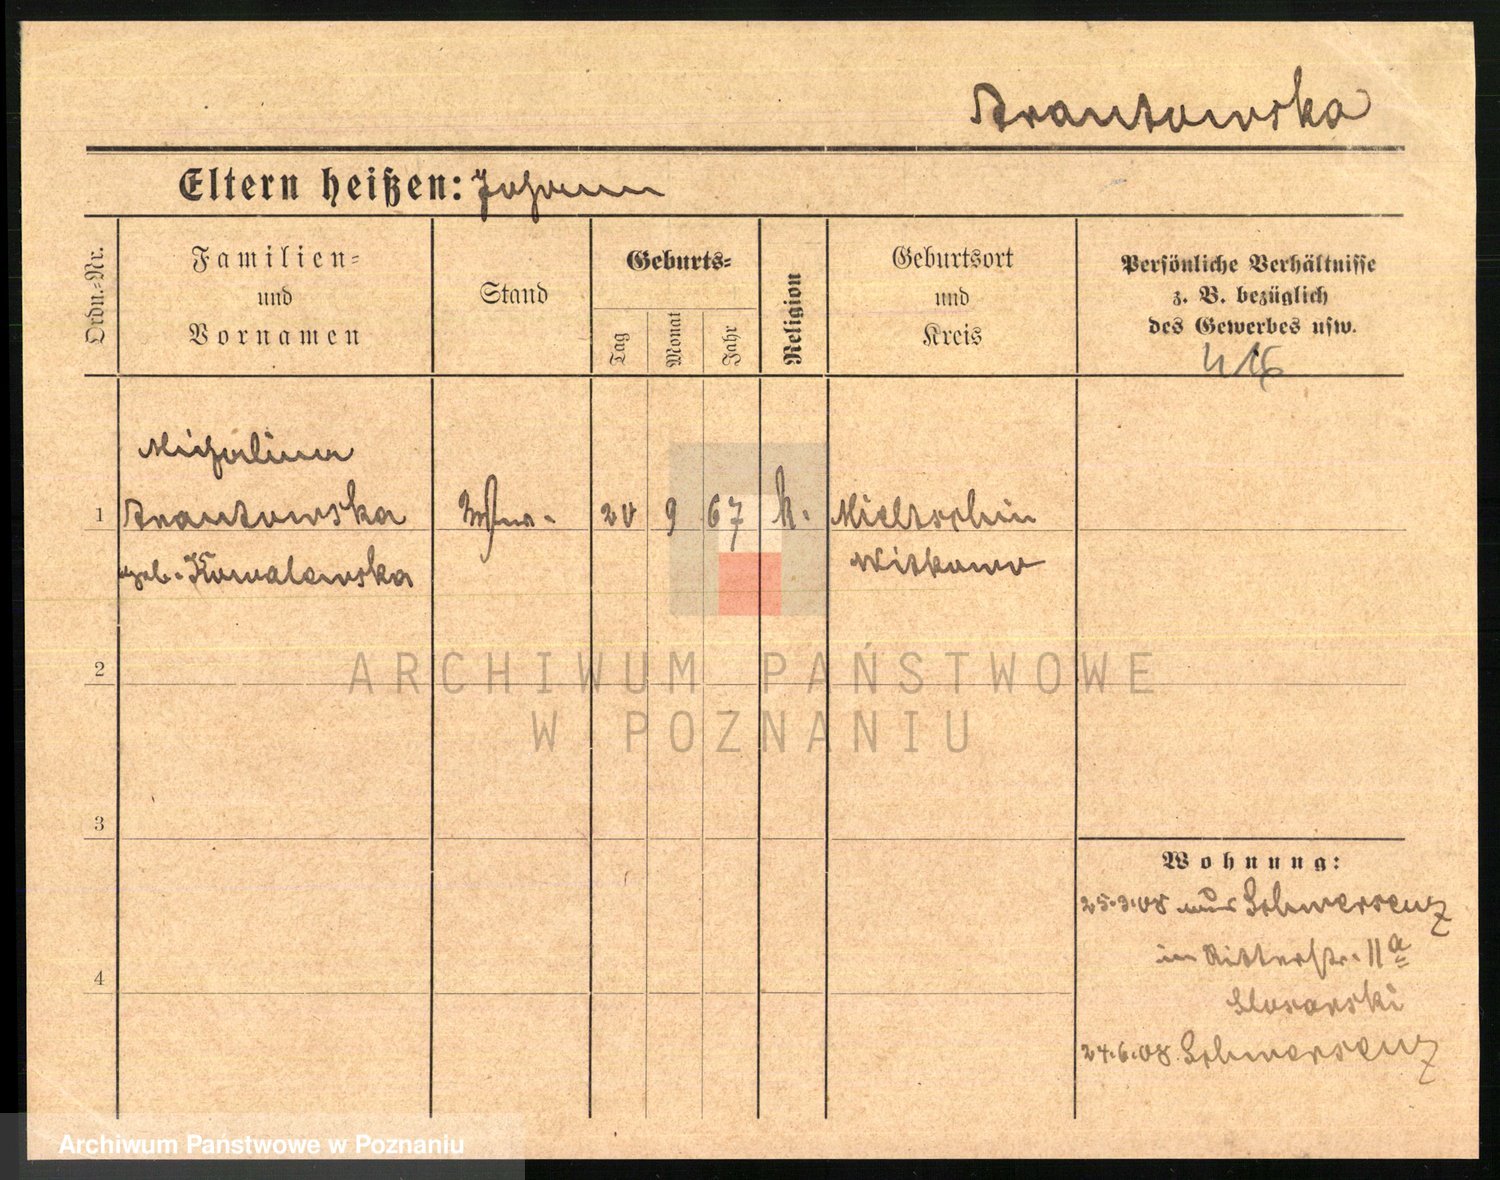 Arantowska
Eltern heißen: Johann
Ordn.-Nr.
Familien-
und
Vornamen
Stand
Geburts-
Tag
Monat
Jahr
Religion
Geburtsort
und
Kreis
Persönliche Verhältnisse
z. B. bezüglich
des Gewerbes usw.
Michalina
1 Arantowska 20 9 67 k. Mieltschin
geb. Kowalewska Witkowo
2
3
4
Wohnung:
25.3.08 aus Schwersenz
in Ritterstr. 11a
24.6.08. Schwersenz
ARCHIWUM PAŃSTWOWE
W POZNANIU
Archiwum Państwowe w Poznaniu